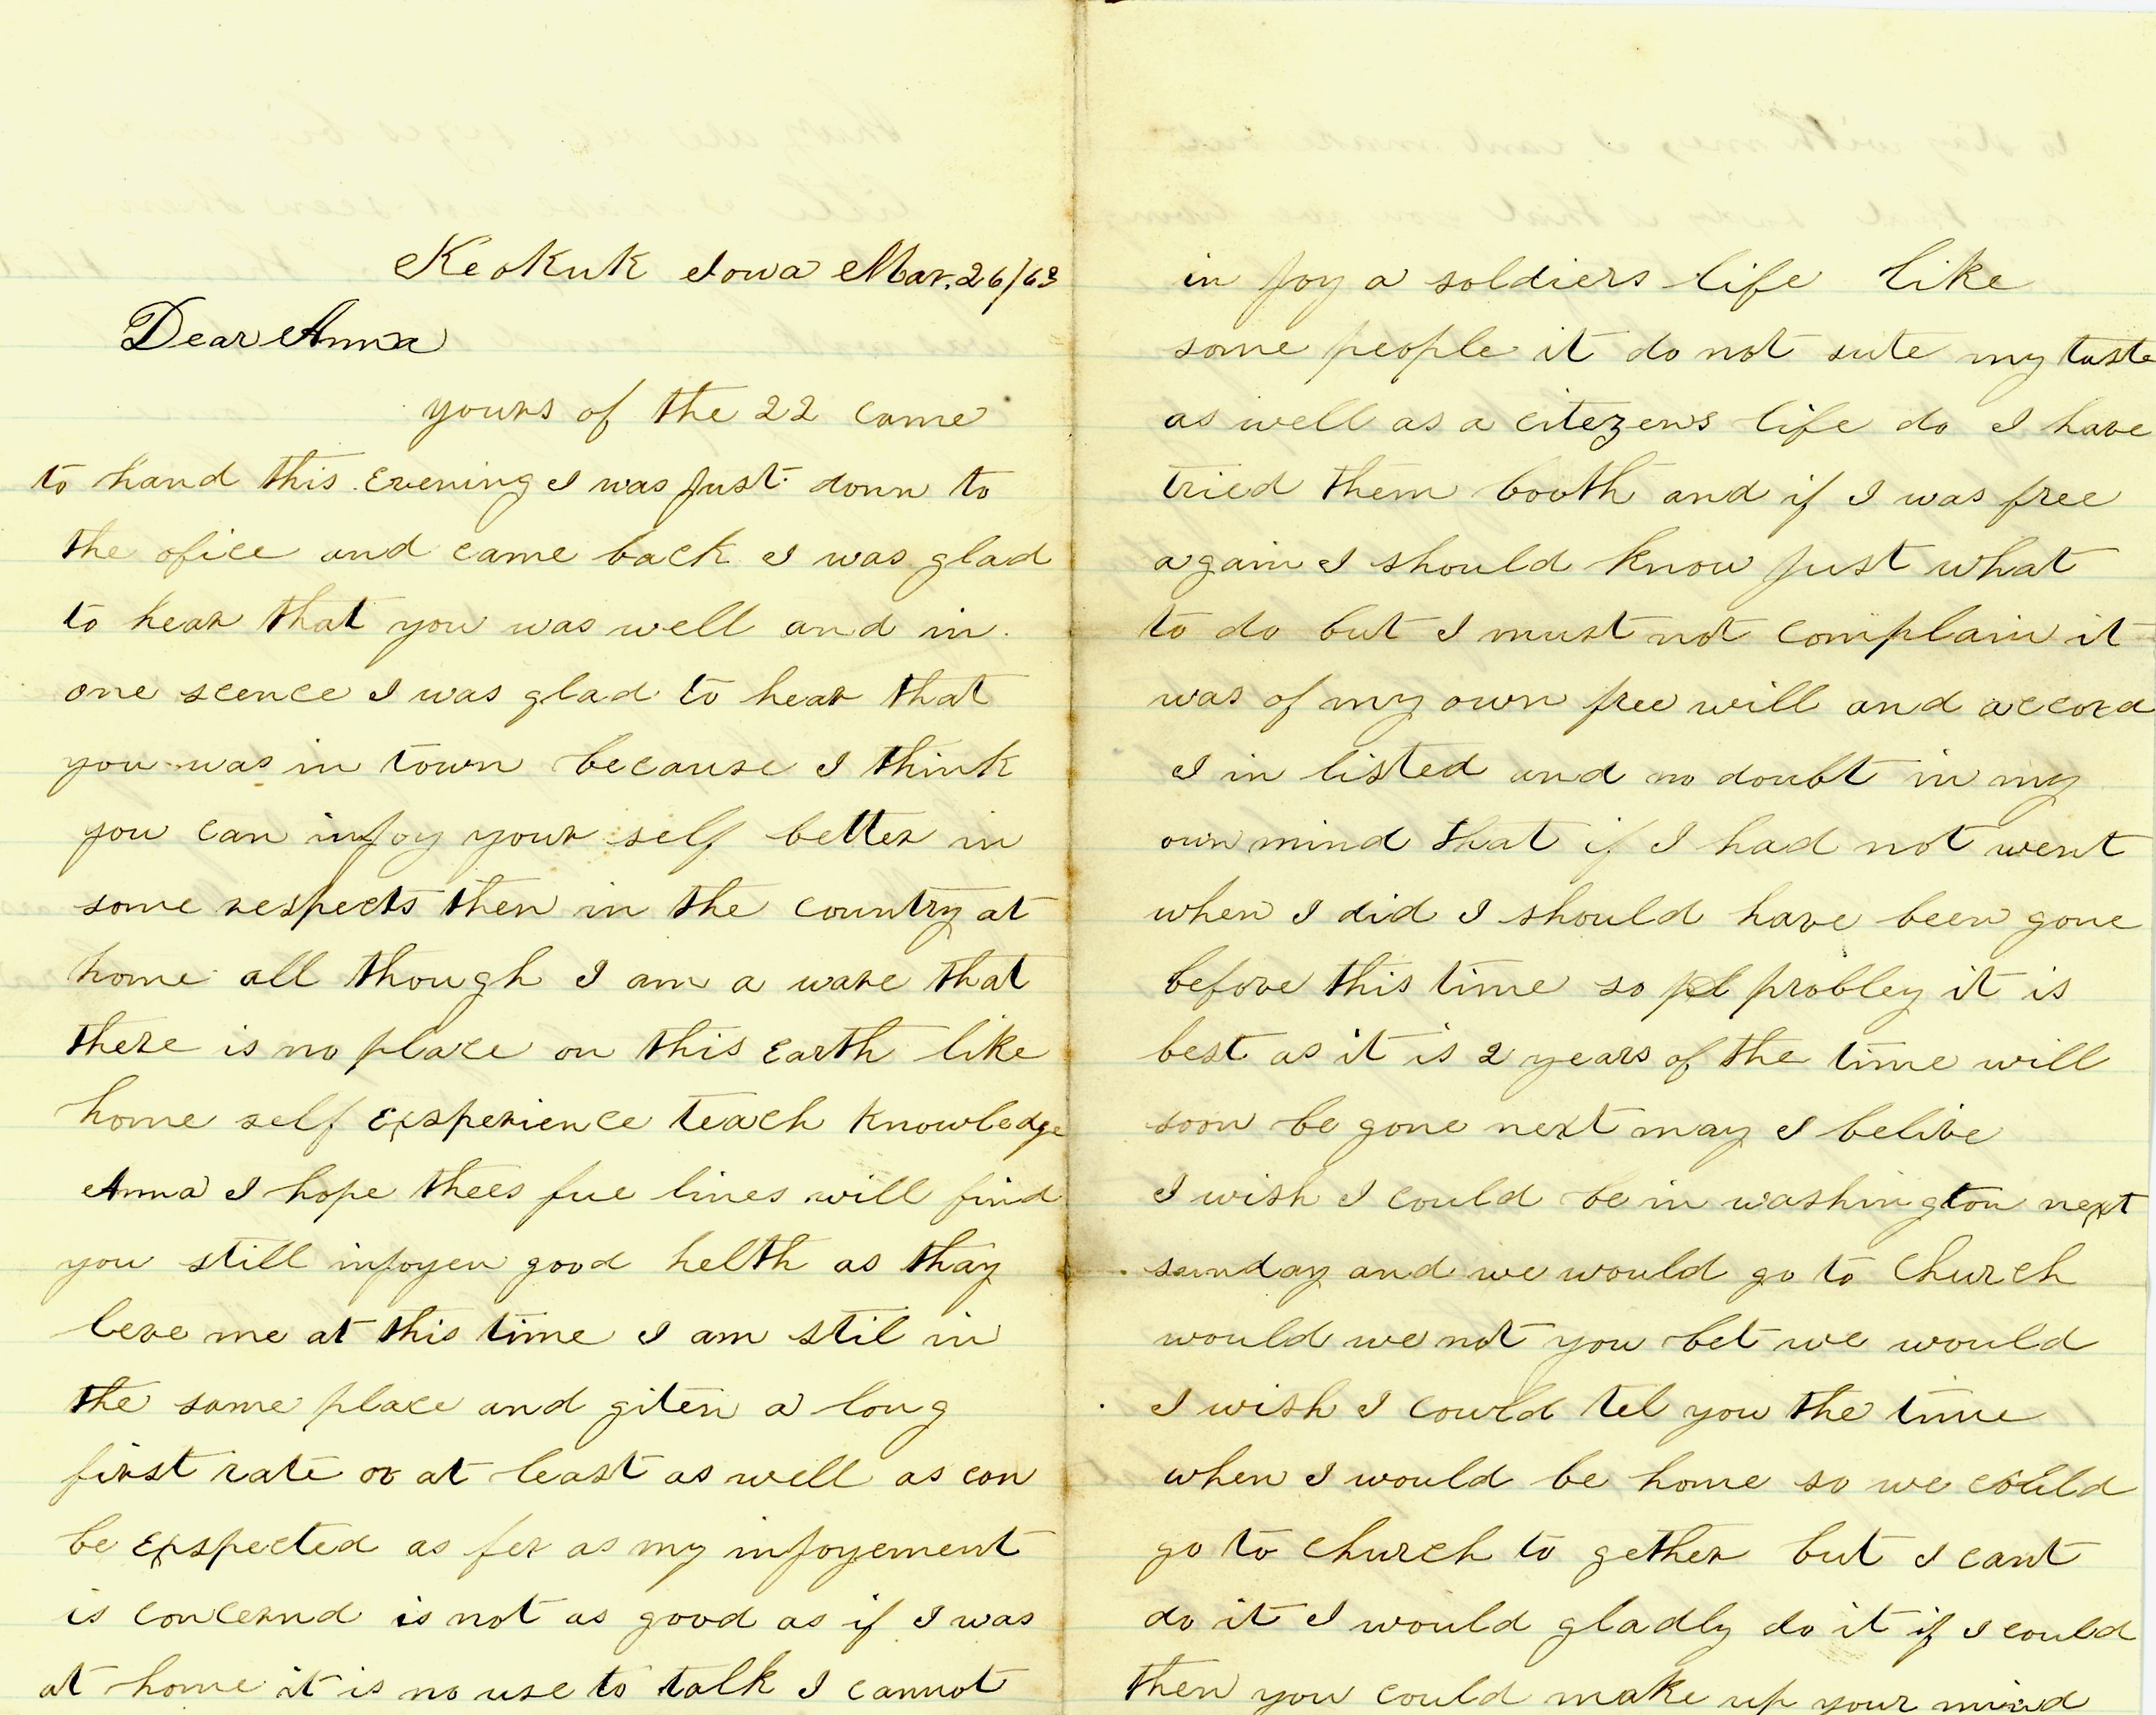 Keokuk Iowa Mar. 26/63
Dear Anna
yours of the 22 came
to hand this Evening I was just down to
the ofice and came back I was glad
to hear that you was well and in
one scence I was glad to hear that
you was in town because I think
you can injoy your self better in
some respects then in the country at
home all though I am a ware that
there is no place on this Earth like
home self Exsperience teach knowledge
Anna I hope thees fue lines will find
you still injoyen good helth as thay
leve me at this time I am stil in
the same place and giten a long
first rate or at least as well as con
be Exspected as fer as my injoyement
is concernd is not as good as if I was
at home it is no use to talk I cannot
in joy a soldiers life like
some people it do not sute my taste
as well as a citezens life do I have
tried them booth and if I was free
again I should know just what
to do but I must not complain it
was of my own free will and accord
I in listed and no doubt in my
own mind that if I had not went
when I did I should have been gone
before this time so probley it is
best as it is 2 years of the time will
soon be gone next may I belive
I wish I could be in washington next
sunday and we would go to church
would we not you bet we would
I wish I could tel you the time
when I would be home so we could
go to church to gether but I cant
do it I would gladly do it if I could
then you could make up your mind